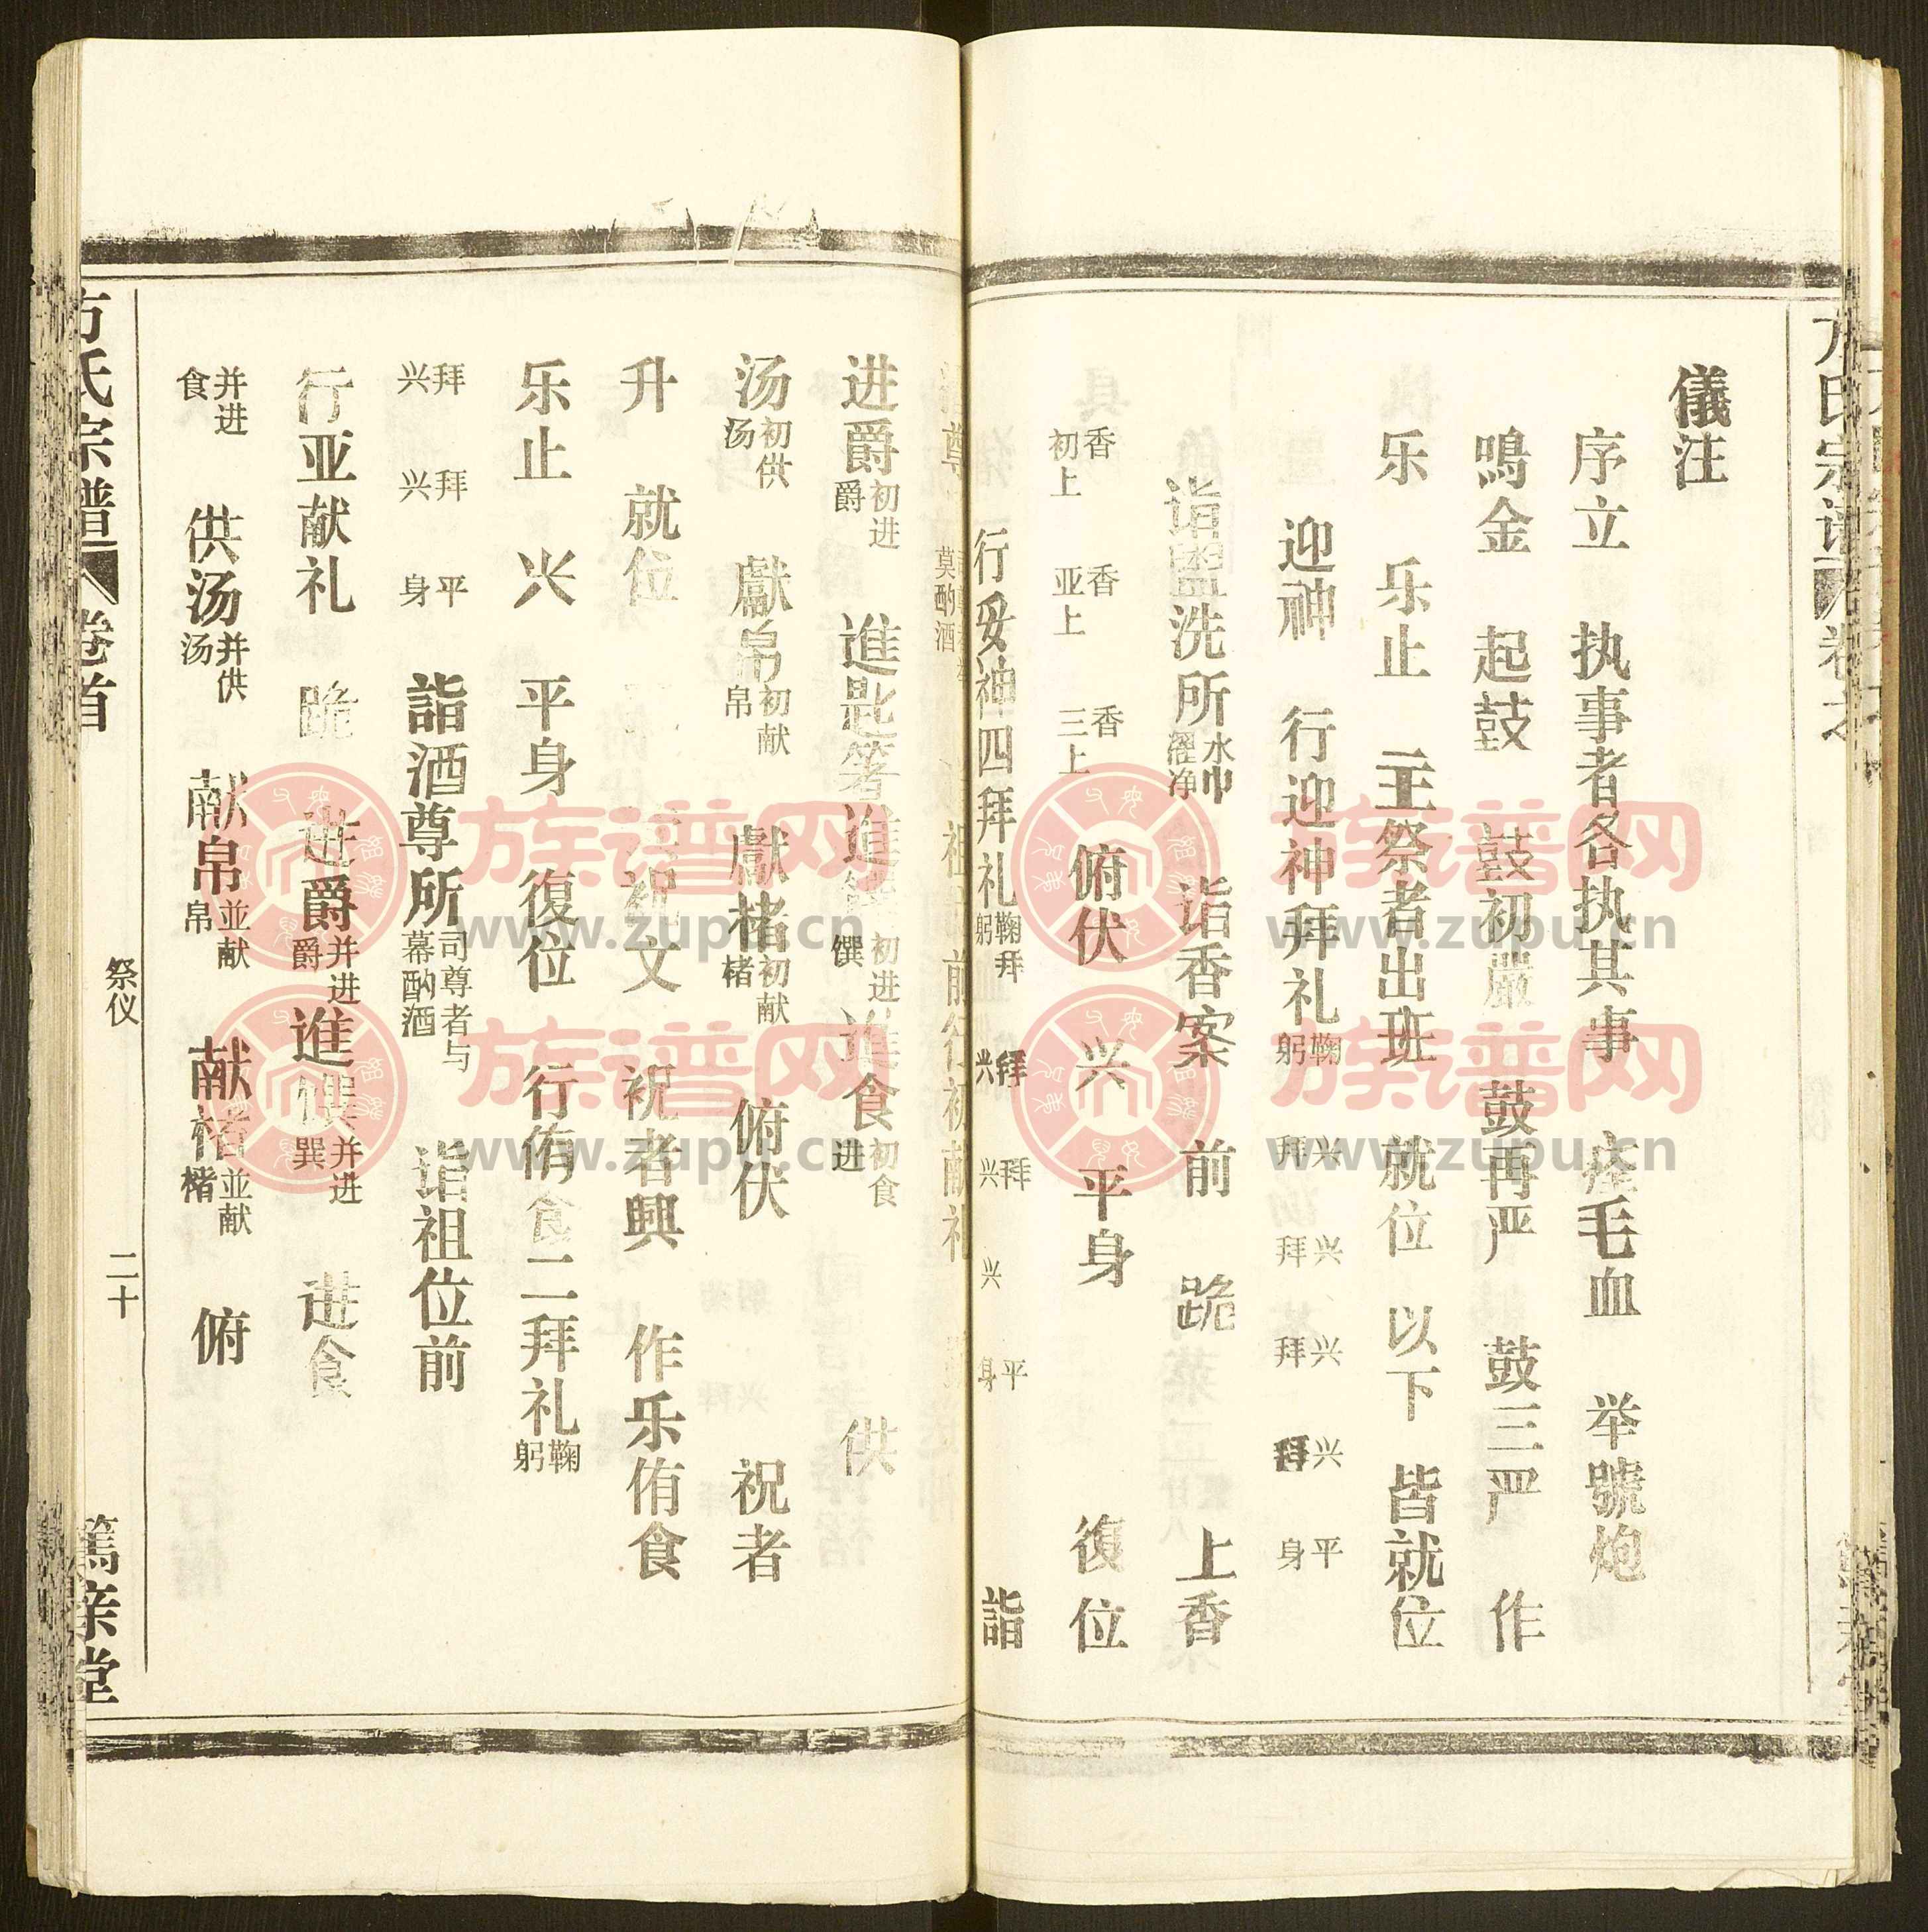 儀注
序立 执事者各执其事 瘗毛血 举號炮
鳴金 起鼓 鼓初嚴 鼓再严 鼓三严 作
乐 乐止 主祭者出班 就位 以下 皆就位
迎神 行迎神拜礼 鞠躬 拜兴 拜兴 拜兴 拜兴 平身
诣盥洗所 水巾濯净 诣香案 前 跪 上香
香初上 香亚上 香三上 俯伏 兴 平身 復位
行妥神四拜礼 鞠躬 拜 拜兴 拜兴 兴 平身 詣
尊 酌酒 祖 前行初献礼
进爵 初进爵 進匙箸進 初进馔 進食 初食进 供
汤 初供汤 獻帛 初献帛 獻楮 初献楮 俯伏 祝者
升 就位 祝文 祝者興 作乐侑食
乐止 兴 平身 復位 行侑食二拜礼 鞠躬
拜兴 拜兴 平身 詣酒尊所 司尊者与幕酌酒 诣祖位前
行亚献礼 跪 进爵 并进爵 進馔 并进巽 进食
并进食 供汤 并供汤 献帛 並献帛 献楮 並献楮 俯
方氏宗譜 卷首 祭仪 二十 篤亲堂
族谱网 www.zupu.cn
族谱网 www.zupu.cn
族谱网 www.zupu.cn
族谱网 www.zupu.cn